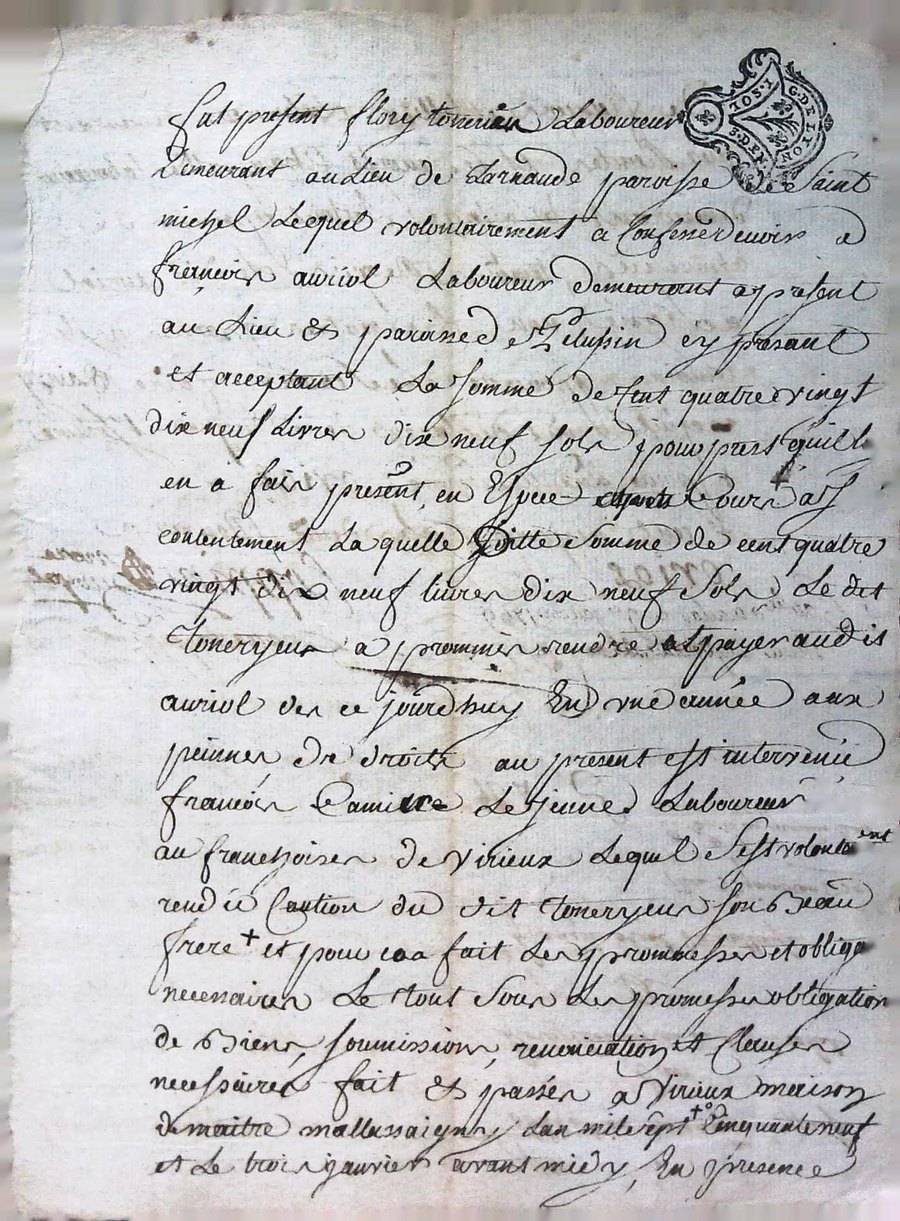 G. DE LYON
TOS. I
3. DEN
fut present flory tonerieux Laboureur
demeurant au Lieu de Larnaude paroisse de Saint
michel Lequel volontairement a Confessé devoir a
françois auriol Laboureur demeurant a present
au Lieu & paroisse de Pelussin cy present
et acceptant La somme de Cent quatre vingt
dix neuf Livres dix neuf sols pour prest quil
en a fait present en Espece Cours a s
contentement La quelle ditte somme de cent quatre
vingt dix neuf livres dix neuf sols Le dit
toneryeux a prommis rendre et payer au dit
auriol des ce jourdhuy En une année aux
peinnes de droits au present est intervenu
francois Camier Le jeune Laboureur
au franchises de virieux Lequel sest volontent
rendu Caution du dit toneryeux son Beau
frere + et pour ca a fait Les prommesses et obliga
necessaires Le tout sous Les promesses obligation
de Biens, soumission, renonciation et Clauses
necessaires fait & passés a virieux maison
de maitre mallassaigny Lan mil sept + cinquante neuf
et Le trois janvier avant midy, En presence